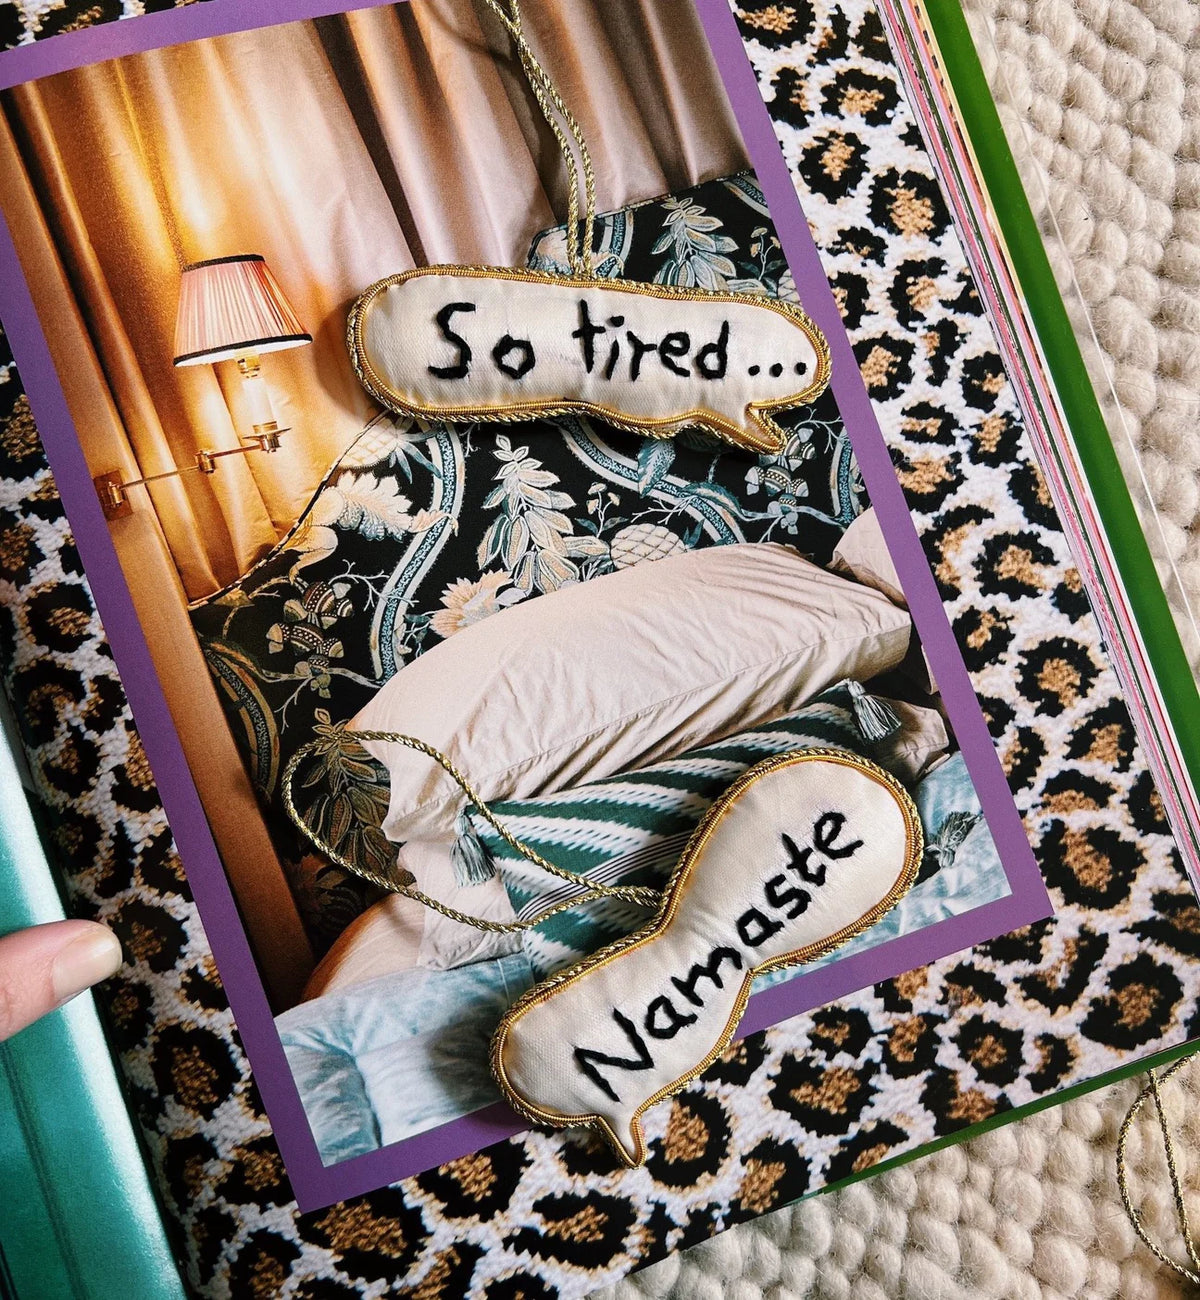 So tired...
Namaste